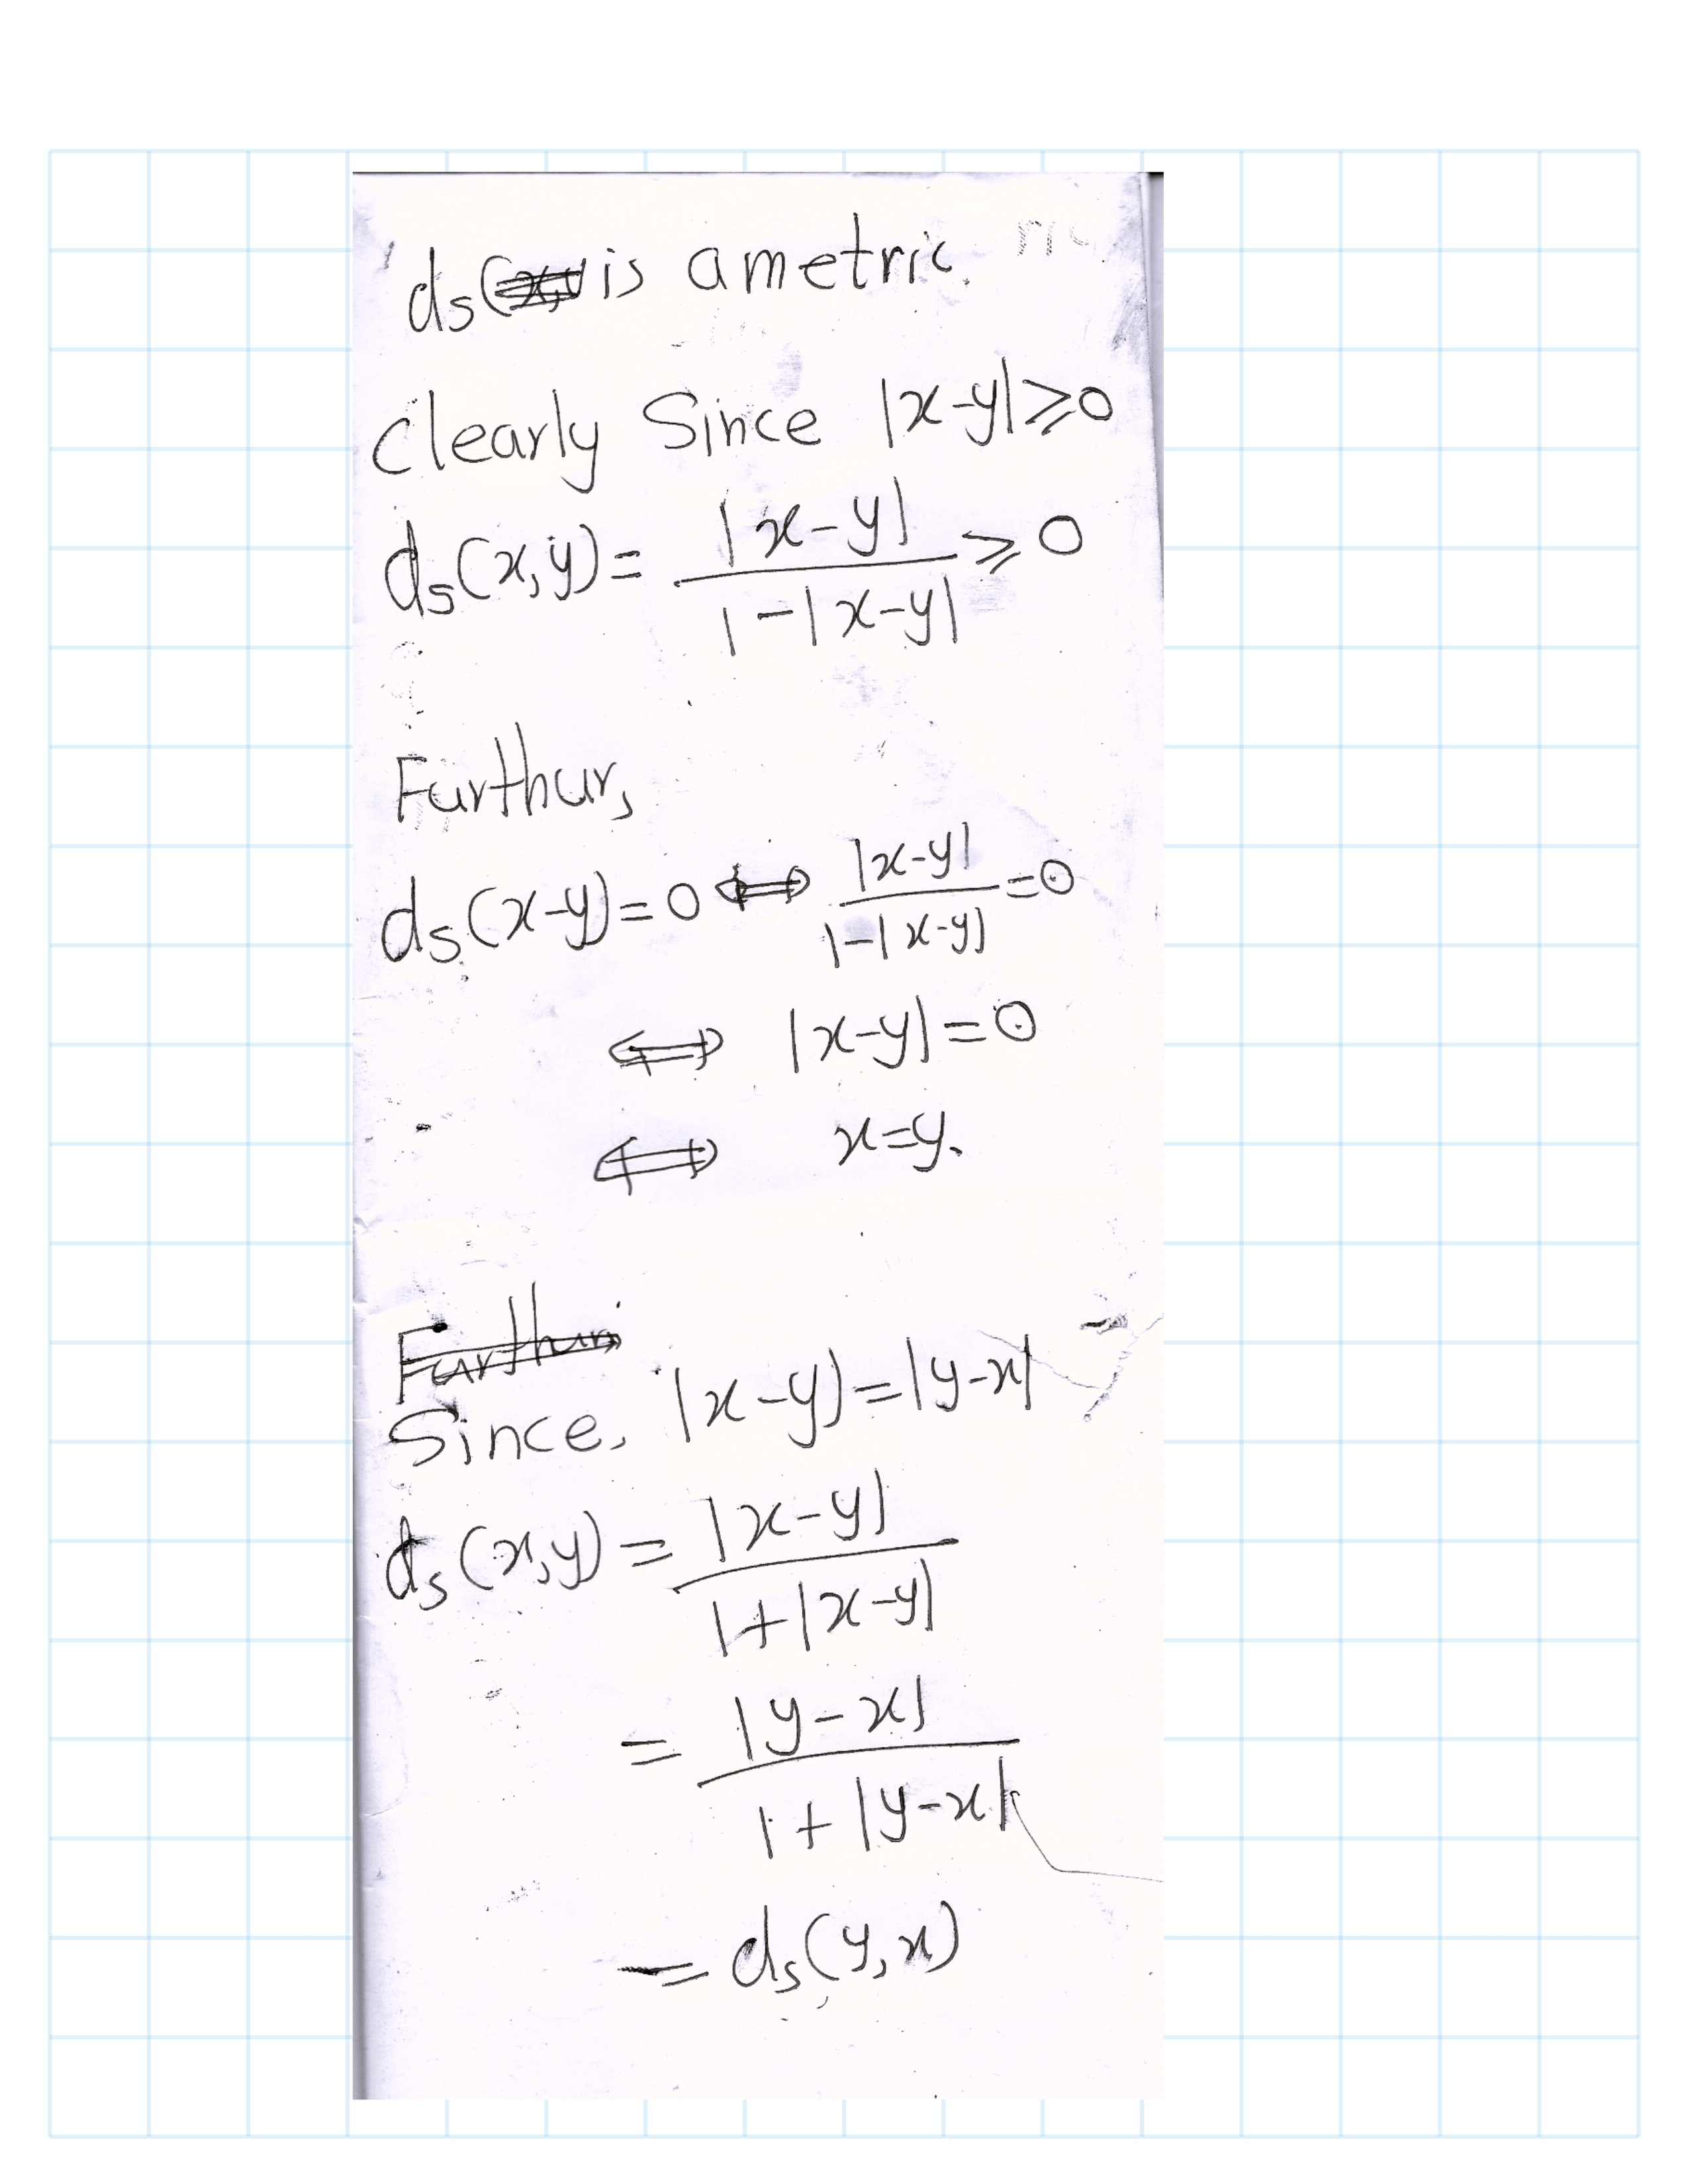 ds is a metric.
Clearly Since |x-y|≥0
ds(x,y)= |x-y| / 1-|x-y| ≥0
Furthur,
ds(x-y)=0 ⇔ |x-y| / 1-|x-y| =0
⇔ |x-y|=0
⇔ x=y.
Furthur
Since, |x-y)=|y-x|
ds(x,y)= |x-y| / 1+|x-y|
= |y-x| / 1+|y-x|
= ds(y,x)